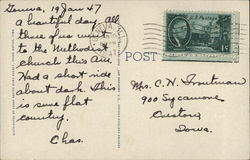 Genova, 19 Jan 47
A beautiful day all
three of us went
to the Methodist
church this Am.
Had a short ride
about dark. This
is sure flat
country.
Chas.
POST
Mrs. C. H. Troutman
900 Sycamore
Creston,
Iowa.
U.S. Postage
1¢